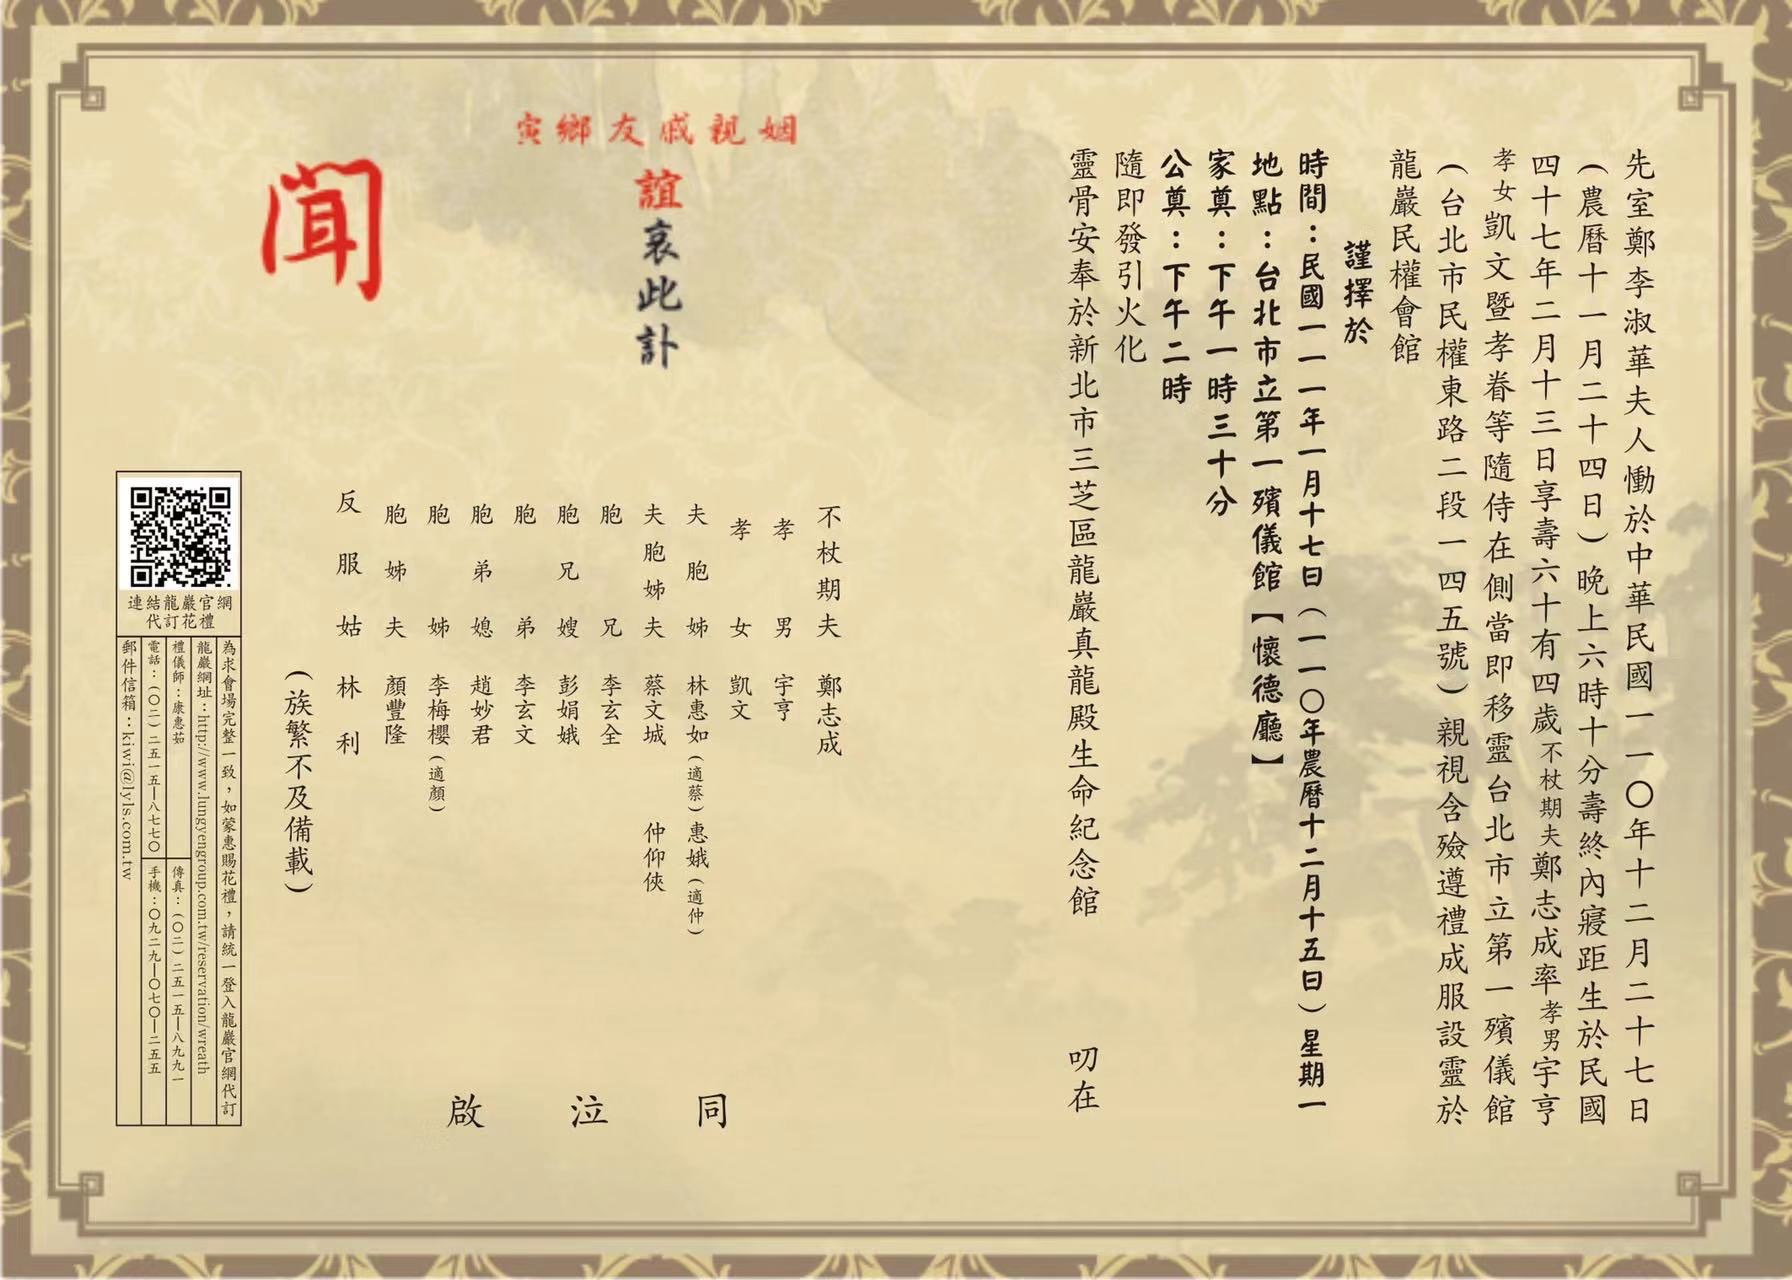 先室鄭李淑華夫人慟於中華民國一一〇年十二月二十七日
(農曆十一月二十四日)晚上六時十分壽終內寢距生於民國
四十七年二月十三日享壽六十有四歲不杖期夫鄭志成率孝男宇亨
孝女凱文暨孝眷等隨侍在側當即移靈台北市立第一殯儀館
(台北市民權東路二段一四五號)親視含殮遵禮成服設靈於
龍巖民權會館
謹擇於
時間:民國一一一年一月十七日(一一〇年農曆十二月十五日)星期一
地點:台北市立第一殯儀館【懷德廳】
家奠:下午一時三十分
公奠:下午二時
隨即發引火化
靈骨安奉於新北市三芝區龍巖真龍殿生命紀念館 叨在
姻親戚友鄉寅
誼哀此訃
聞
不杖期夫 鄭志成
孝男 宇亨
孝女 凱文
夫胞姊 林惠如(適蔡)惠娥(適仲)
夫胞姊夫 蔡文城 仲仰俠
胞兄 李玄全
胞兄嫂 彭娟娥
胞弟 李玄文
胞弟媳 趙妙君
胞姊 李梅櫻(適顏)
胞姊夫 顏豐隆
反服姑 林利
(族繁不及備載)
同泣啟
連結龍巖官網
代訂花禮
為求會場完整一致,如蒙惠賜花禮,請統一登入龍巖官網代訂
龍巖網址:http://www.lungyengroup.com.tw/reservation/wreath
禮儀師:康惠茹
傳真:(〇二)二五一五—八九九一
電話:(〇二)二五一五—八七七〇
手機:〇九二九—〇七〇—二五五
郵件信箱:kiwi@lyls.com.tw